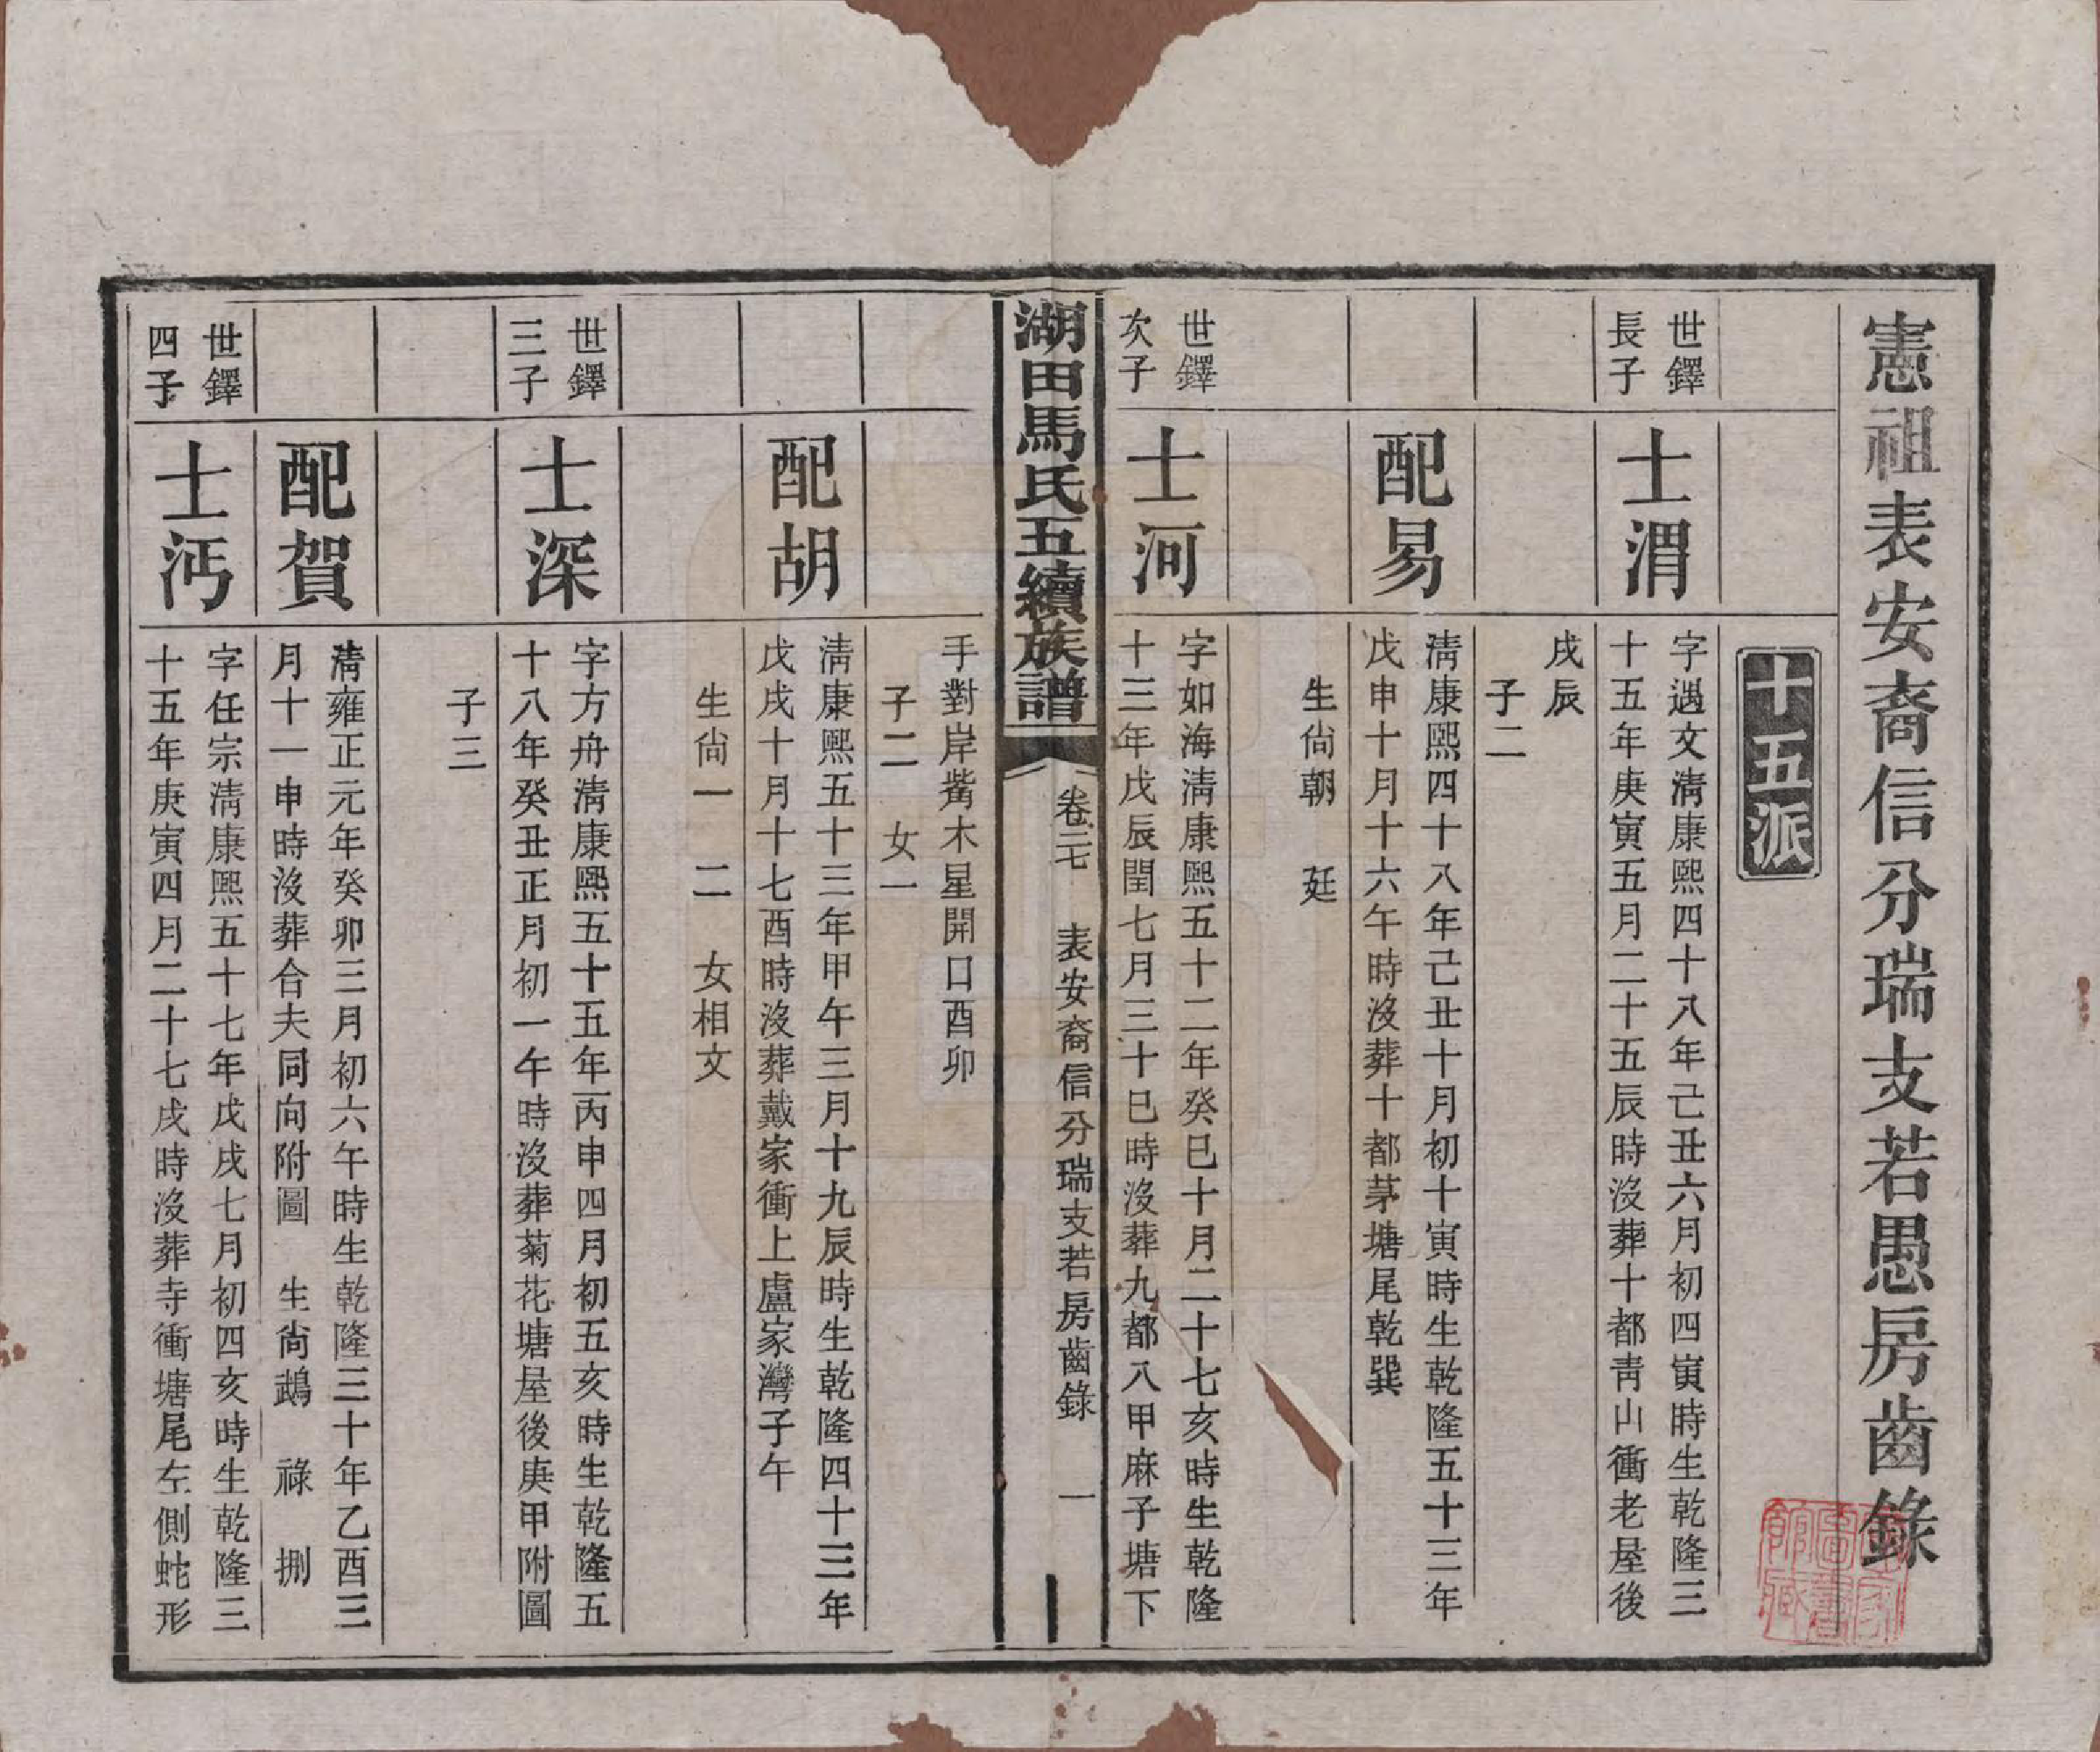 憲祖表安裔信分瑞支若愚房齒錄
十五派
世鐸
長子
士渭
字遇文淸康熙四十八年己丑六月初四寅時生乾隆三
十五年庚寅五月二十五辰時沒葬十都靑山衝老屋後
戌辰
子二
配易
淸康熙四十八年己丑十月初十寅時生乾隆五十三年
戊申十月十六午時沒葬十都茅塘尾乾巽
生尙朝　廷
世鐸
次子
士河
字如海淸康熙五十二年癸巳十月二十七亥時生乾隆
十三年戊辰閏七月三十巳時沒葬九都八甲麻子塘下
湖田馬氏五續族譜
卷三七
表安裔信分瑞支若房齒錄
一
手對岸觜木星開口酉卯
子二　女一
配胡
淸康熙五十三年甲午三月十九辰時生乾隆四十三年
戊戌十月十七酉時沒葬戴家衝上盧家灣子午
生尙一　二　女相文
世鐸
三子
士深
字方舟淸康熙五十五年丙申四月初五亥時生乾隆五
十八年癸丑正月初一午時沒葬菊花塘屋後庚甲附圖
子三
配賀
淸雍正元年癸卯三月初六午時生乾隆三十年乙酉三
月十一申時沒葬合夫同向附圖　生尙鵡　祿　捌
世鐸
四子
士沔
字任宗淸康熙五十七年戊戌七月初四亥時生乾隆三
十五年庚寅四月二十七戌時沒葬寺衝塘尾左側蛇形